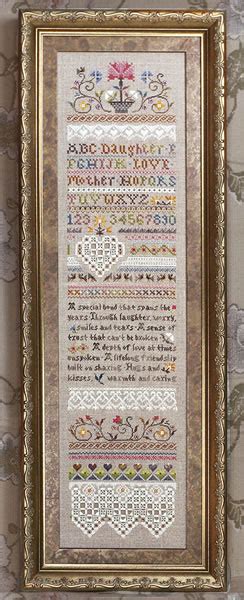 ABC Daughter E
FGHIJK LOVE
Mother NOPQRS
TUVWXYZ
1234567890
A special bond that spans the
years. Through laughter, worry,
smiles and tears. A sense of
trust that can't be broken.
A depth of love at times
unspoken. A lifelong friendship
built on sharing. Hugs and
kisses, warmth and caring